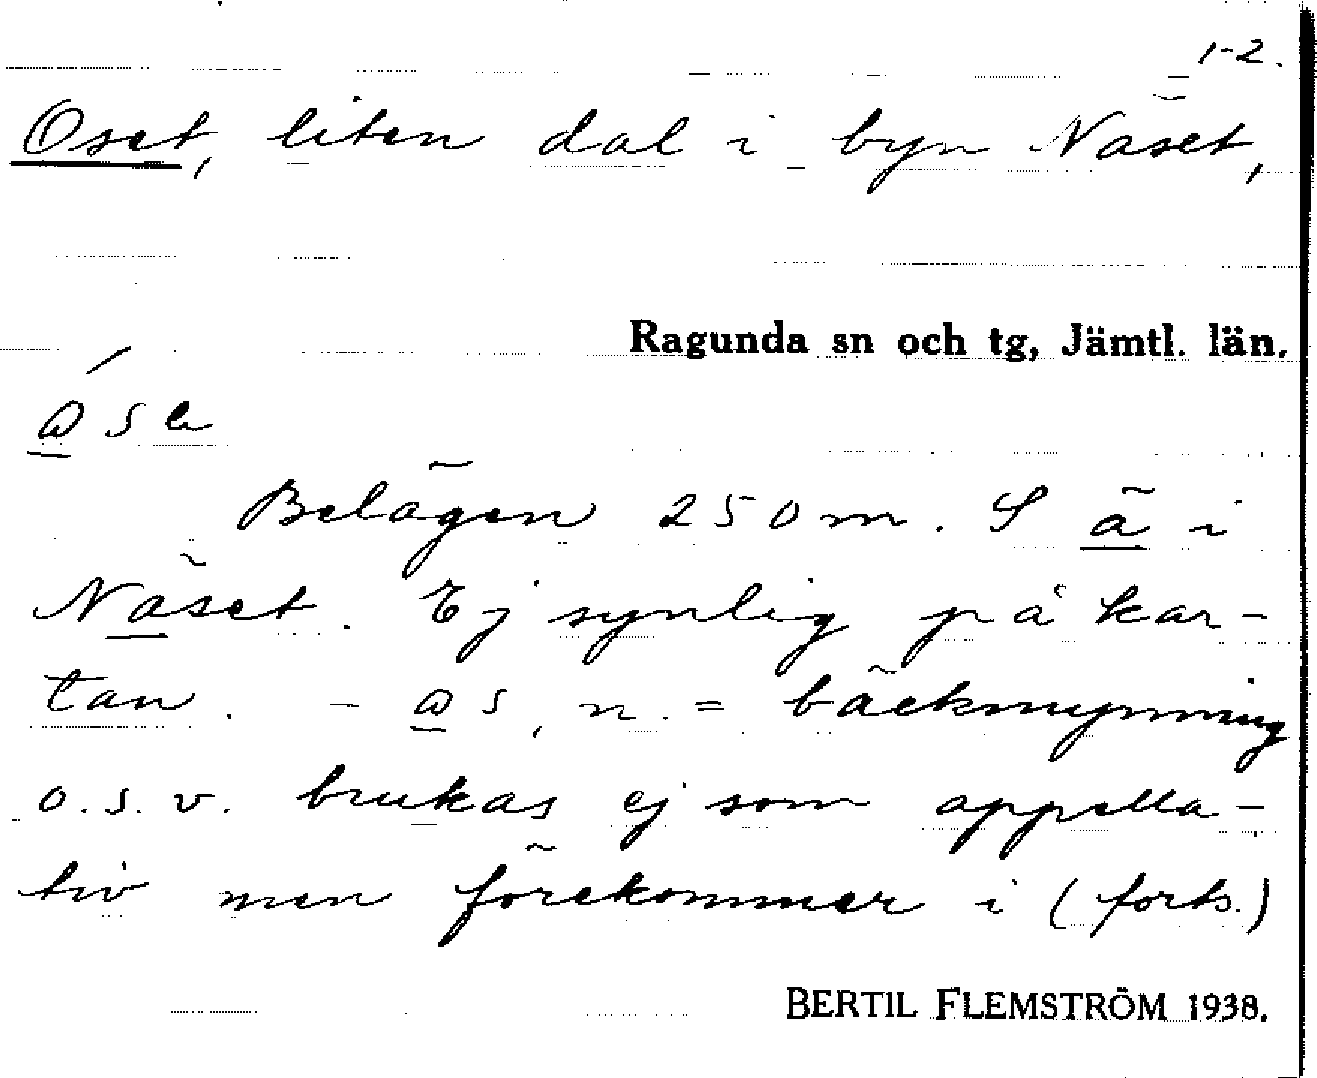 1-2.
Oset, liten dal i byn Näset,
Ragunda sn och tg, Jämtl. län.
Belägen 250 m. S ä i
Näset. Ej synlig på kar-
tan. - s, n. = bäckmynning
o.s.v. brukas ej som appella-
tiv men förekommer i (forts.)
BERTIL FLEMSTRÖM 1938.